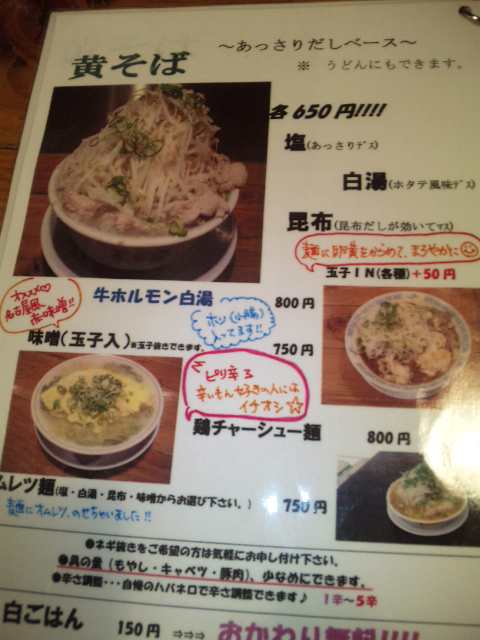 黄そば
～あっさりだしベース～
※ うどんにもできます。
各650円!!!!
塩(あっさりﾃﾞｽ)
白湯(ホタテ風味ﾃﾞｽ)
昆布(昆布だしが効いてﾏｽ)
麺に卵黄をからめて、まろやかに
玉子ＩＮ(各種)+50円
オススメ♡
名古屋風
赤味噌!!
牛ホルモン白湯 800円
ホソ(小腸)
入ってます!!
味噌(玉子入)※玉子抜きできます 750円
ピリ辛る
辛いもん好きの人には
イチオシ☆
鶏チャーシュー麺 800円
ムレツ麺(塩・白湯・昆布・味噌からお選び下さい。) 750円
麺にオムレツ、のせちゃいました!!
●ネギ抜きをご希望の方は気軽にお申し付け下さい。
●具の量（もやし・キャベツ・豚肉）、少なめにできます。
●辛さ調整･･･自慢のハバネロで辛さ調整できます♪ 1辛～5辛
白ごはん 150円 ⇒⇒⇒ おかわり無料!!!!